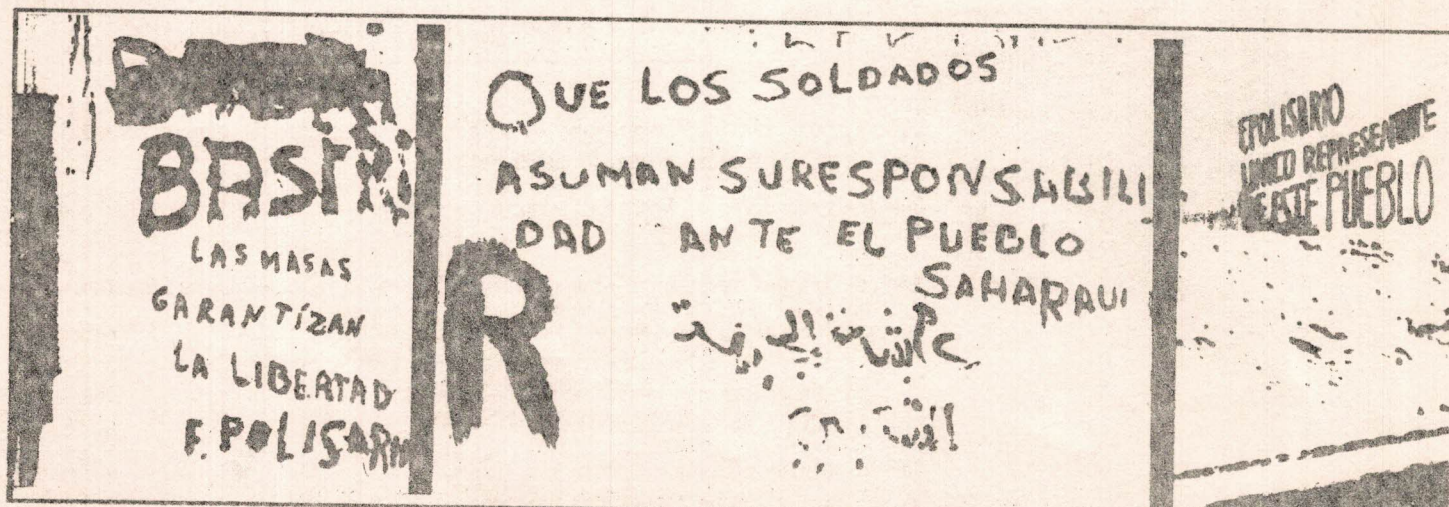 BASIRI
LAS MASAS
GARANTÍZAN
LA LIBERTAD
F. POLISARIO
QUE LOS SOLDADOS
ASUMAN SU RESPONSABILI
DAD ANTE EL PUEBLO
SAHARAUI
R
F POLISARIO
UNICO REPRESENTANTE
DE ESTE PUEBLO